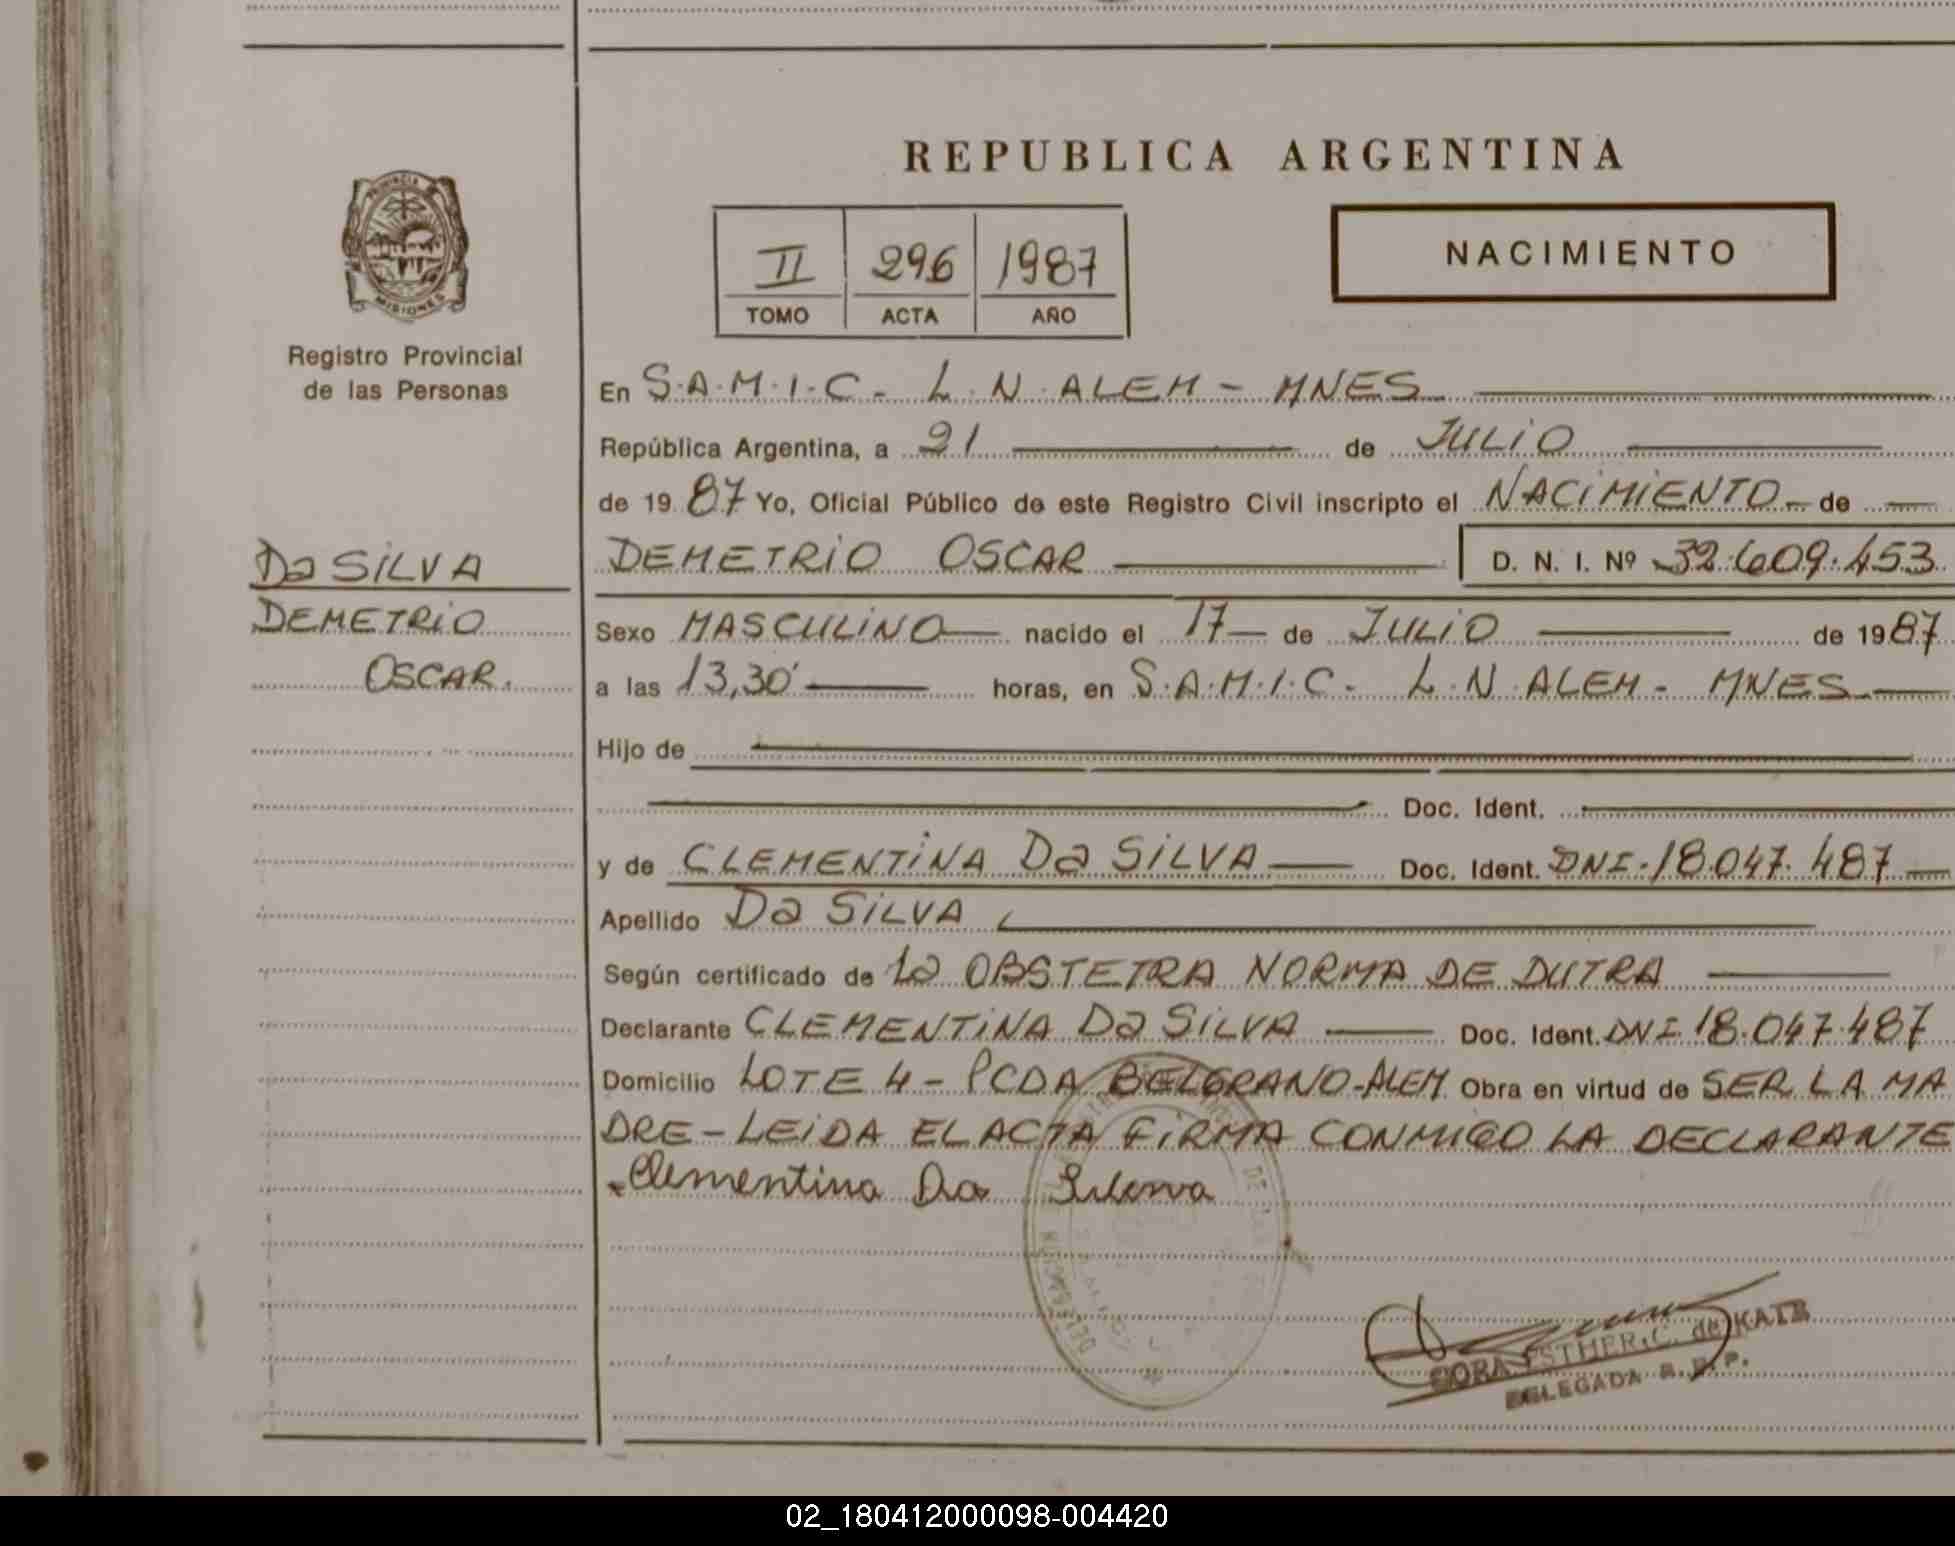 REPUBLICA ARGENTINA
PROVINCIA
MISIONES
Registro Provincial
de las Personas
II 296 1987
TOMO ACTA AÑO
NACIMIENTO
En S.A.M.I.C - L.N. ALEM - MNES
República Argentina, a 21 de JULIO
de 1987 Yo, Oficial Público de este Registro Civil inscripto el NACIMIENTO - de
Da SILVA
DEMETRIO
OSCAR.
DEMETRIO OSCAR D. N. I. Nº 32.609.453
Sexo MASCULINO nacido el 17 de JULIO de 1987
a las 13,30' horas, en S.A.M.I.C - L.N. ALEM - MNES
Hijo de
Doc. Ident.
y de CLEMENTINA Da SILVA Doc. Ident. DNI.18.047.487
Apellido Da SILVA
Según certificado de La OBSTETRA NORMA DE DUTRA
Declarante CLEMENTINA Da SILVA Doc. Ident. DNI 18.047.487
Domicilio LOTE 4 - PCDA BELGRANO-ALEM Obra en virtud de SER LA MA
DRE - LEIDA EL ACTA FIRMA CONMIGO LA DECLARANTE
Clementina Da Silva
ESTHER C. de KATZ
DELEGADA R. P. P.
02_180412000098-004420